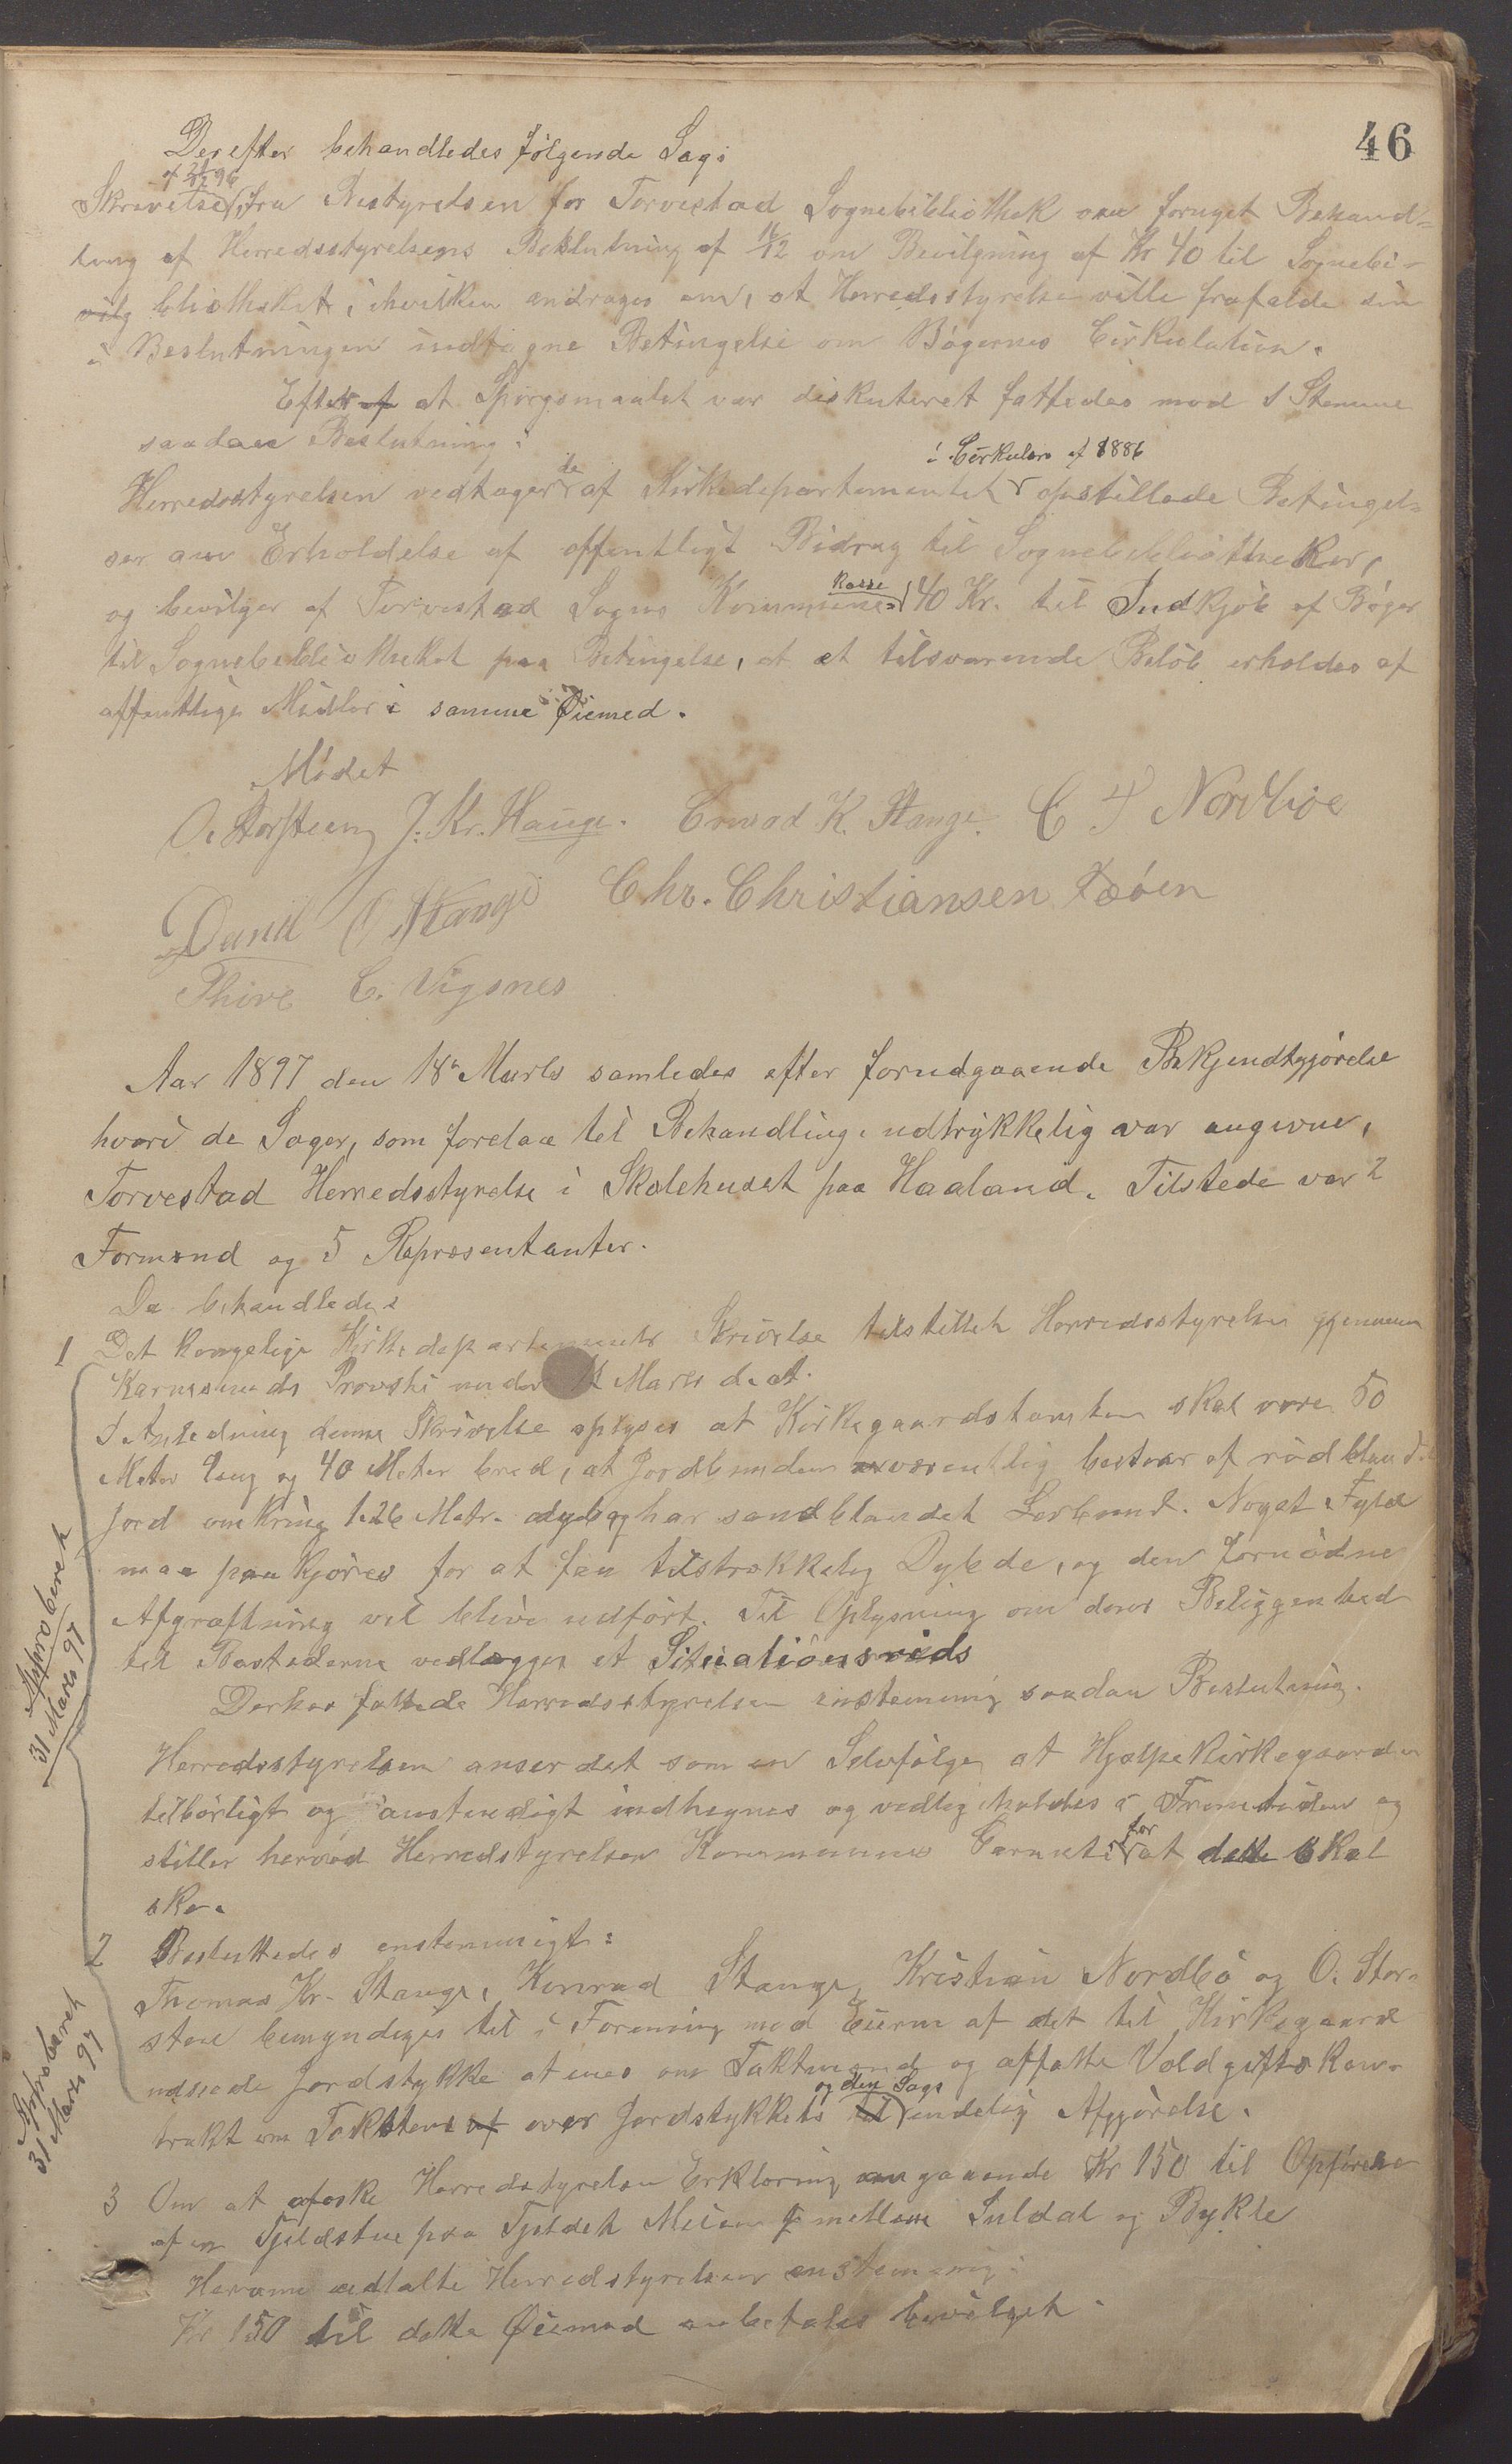 46
Derefter behandledes følgende Sag:
af 21/12 96
Skrivelse fra Bestyrelsen for Torvestad Sognebibliothek om fornyet Behand-
ling af Herredsstyrelsens Beslutning af /12 om Bevilgning af Kr 40 til Sognebi-
bliotheket, i hvilken andrages om, at Herredsstyrelse ville frafalde sin
i Beslutningen indtagne Betingelse om Bøgernes Cirkulation.
Efter at Spørgsmaalet var diskuteret fattedes mod 1 Stemme
saadan Beslutning:
i Cirkulære af 1886
Herredsstyrelsen vedtager de af Kirkedepartementet opstillede Betingel-
ser om Erholdelse af offentligt Bidrag til Sognebibliotheker,
og bevilger af Torvestad Sogns Kommune- kasse 40 Kr. til Indkjøb af Bøger
til Sognebibliotheket paa Betingelse, at et tilsvarende Beløb erholdes af
offentlige Midler i samme Øiemed.
Mødet
O. Storsteen J. Kr. Hauge. Conrad K. Stange. C T Nordbøe
David O Stange Chr. Christiansen Fæøen
Thive C. Vigsnes
Aar 1897 den 18de Marts samledes efter forudgaaende Bekjendtgjørelse
hvori de Sager, som forelaa til Behandling udtrykkelig var angivne,
Torvestad Herredsstyrelse i Skolehuset paa Haaland. Tilstede var 2
Formænd og 5 Repræsentanter.
Da behandledes
1 Det kongelige Kirkedepartements Skrivelse tilstillet Herredsstyrelsen gjennem
Karmsunds Provsti under Marts d. a.
I Anledning denne Skrivelse oplyses at Kirkegaardstomten skal være 50
Meter lang og 40 Meter bred, at Jordbunden væsentlig bestaar af rødblandet
Jord omkring 1.26 Metr. dyb og har sandblandet Lerbund. Noget Fyld
maa paakjøres for at faa tilstrækkelig Dybde, og den fornødne
Afgrøftning vil blive udført. Til Oplysning om dens Beliggenhed
til Bostederne vedlægges et Situationsrids
Derhos fattede Herredsstyrelsen enstemmig saadan Beslutning.
Herredsstyrelsen anser det som en Selvfølge, at Hjælpekirkegaarden
tilbørligt og anstændigt indhegnes og vedligeholdes i Fremtiden og
stiller herved Herredstyrelsen Kommunens Garanti for at dette skal
ske.
2 Besluttedes enstemmigt:
Thomas Kr. Stange, Konrad Stange, Kristian Nordbø og O. Stor-
steen bemyndiges til i Forening med Eieren af det til Kirkegaard
udseede Jordstykke at enes om Takstmænd og affatte Voldgiftskon-
trakt om Taksten over Jordstykkets og den Sags endelig Afgjørelse.
3 Om at afæske Herredstyrelsen Erklæring angaaende Kr 150 til Opførelse
af en Fjeldstue paa Fjeldet Meien mellem Suldal og Bykle
Herom udtalte Herredstyrelsen enstemmig:
Kr 150 til dette Øiemed anbefales bevilget.
Approberet
31 Marts 97
Approberet
31 Marts 97